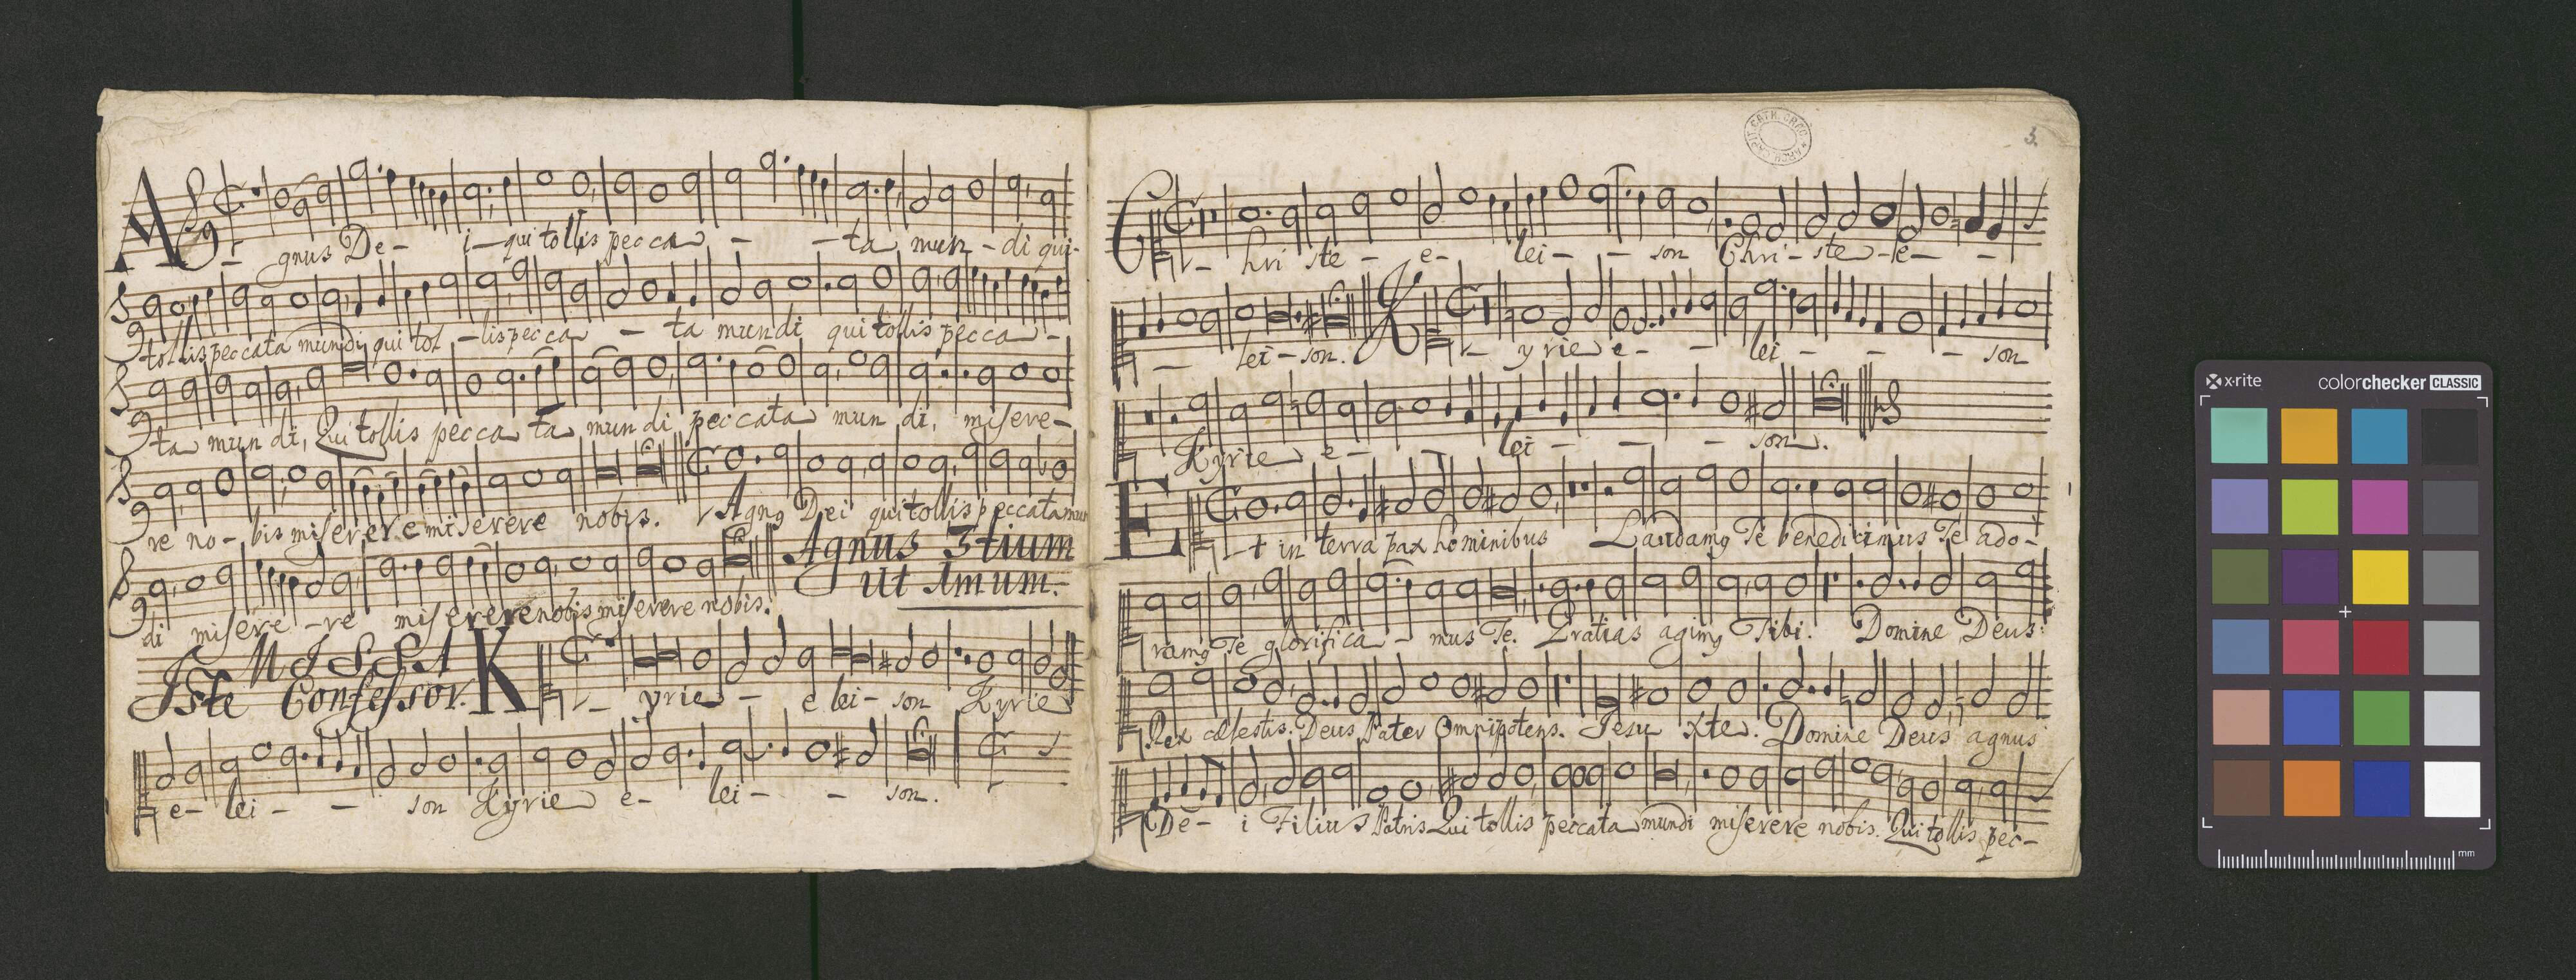 A- gnus De- i- qui tollis pecca - - ta mun - di qui-
tollis peccata mundi qui tol - lis pecca - ta mundi qui tollis pecca -
ta mundi, Qui tollis pecca ta mundi peccata mun di, misere-
re no- bis miserere miserere nobis. Agnꝯ Dei qui tollis peccata mun
di misere - re miserere nobis miserere nobis.
Agnus 3tium
ut 1mum.
MISSA
Iste Confessor.
K- yrie - e lei- son Kyrie
e- lei- - son Kyrie e- lei- - son.
3.
ARCH. CAPIT. CATH. CRAC.
C- hri ste - e- lei- - son Chri- ste - e- -
- lei- son. K- yrie e- - lei - - - son
Kyrie e- lei - - - son.
E- t in terra pax hominibus Laudamꝯ Te benedicimus Te ado-
ramꝯ Te glorifica - mus Te. Gratias agimꝯ Tibi. Domine Deus:
Rex cælestis. Deus Pater Omnipotens. Jesu Xte. Domine Deus agnus
De- i Filius Patris Qui tollis peccata mundi miserere nobis. Qui tollis pec-
x-rite colorchecker CLASSIC
mm